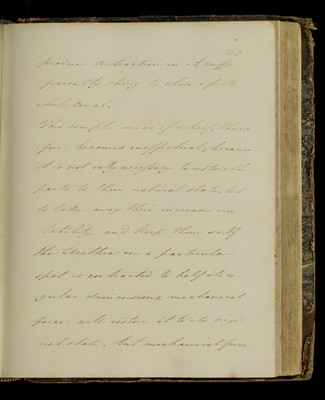 produce contraction in it suffi-
ciently strong to close up its
whole canal.
This simple mode of relief, there
fore, becomes ineffectual; because
it is not only necessary to restore the
parts to their natural state, but
to take away their increase irri
tability and keep them so. If
the Urethra in a particular
spot is contracted to half its re
gular dimensions, mechanical
force will restore it to its origi
nal state, but mechanical force